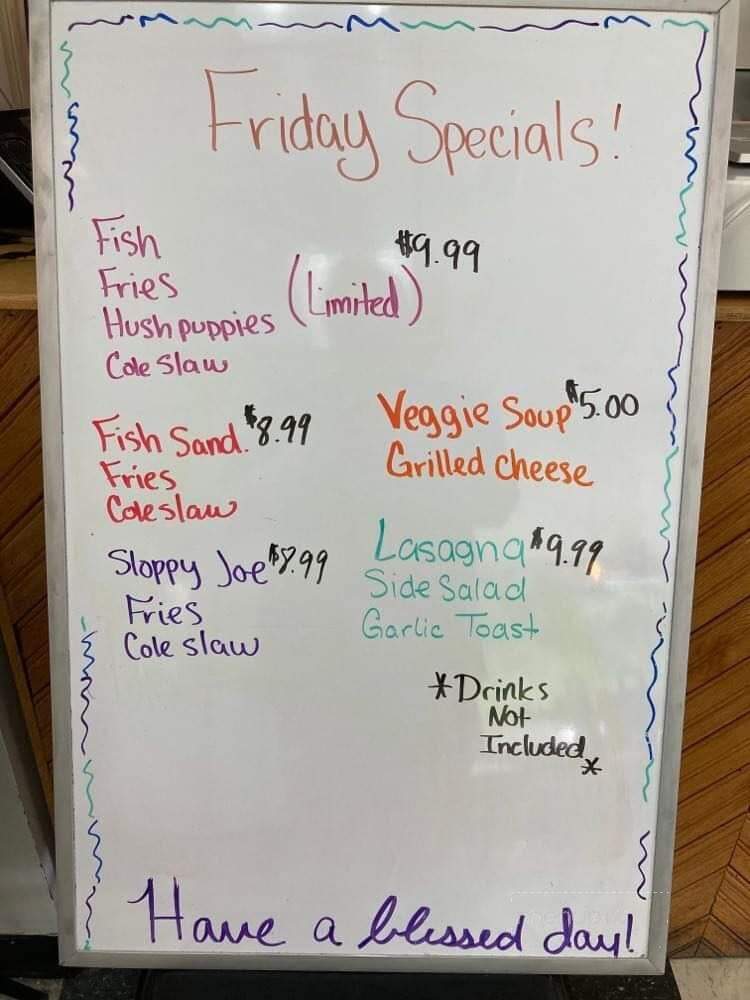 Friday Specials!
Fish $9.99
Fries
Hushpuppies (Limited)
Cole Slaw
Fish Sand. $8.99
Fries
Coleslaw
Veggie Soup $5.00
Grilled Cheese
Sloppy Joe
Fries
Cole slaw
Lasagna $9.99
Side Salad
Garlic Toast
*Drinks
Not
Included*
Have a blessed day!